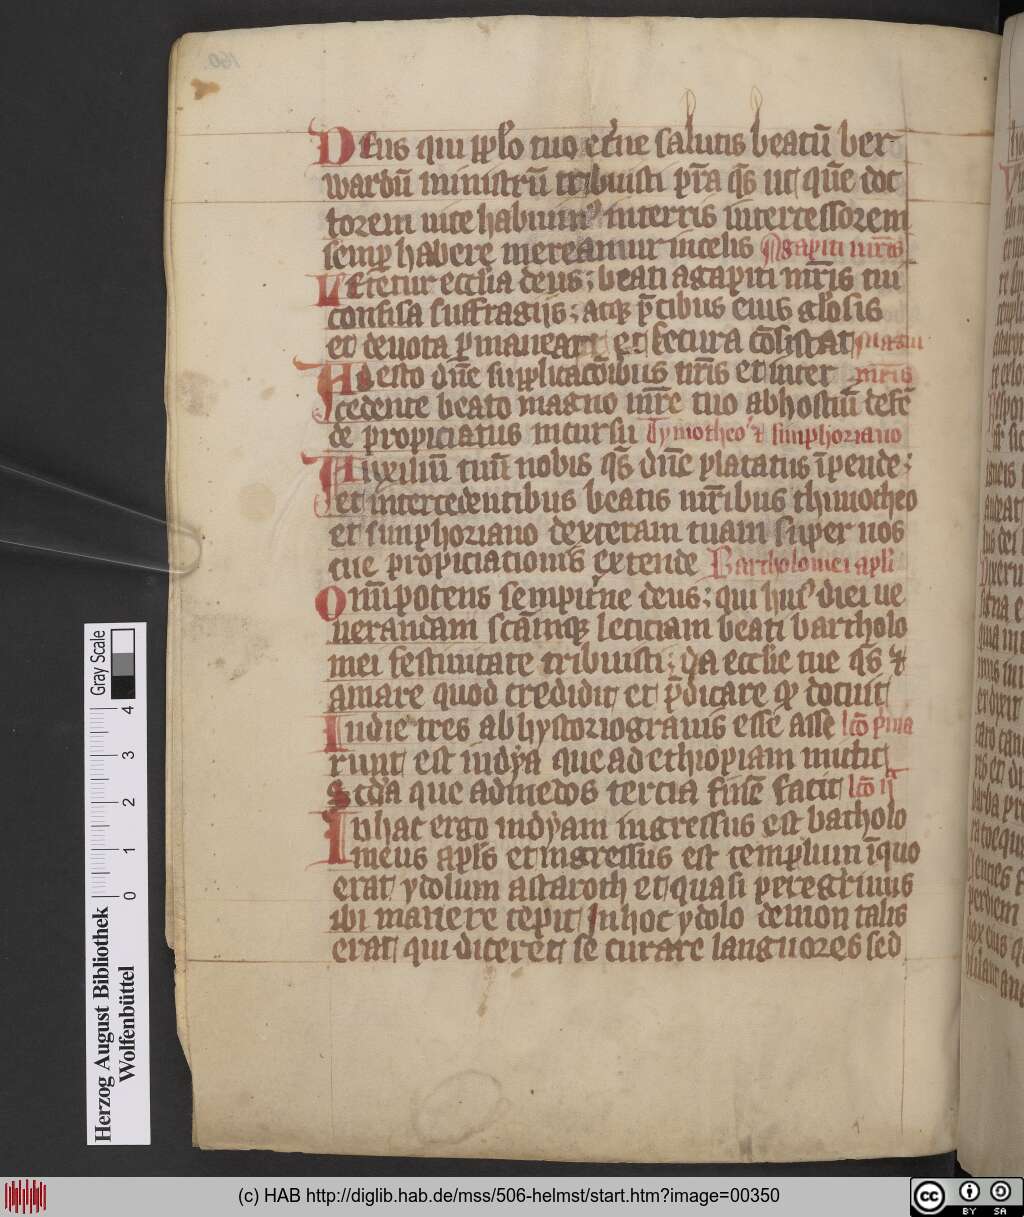 Deus qui pplo tuo et̄ne salutis beatū ber
wardū ministrū tribuisti p̄ra q̄s ut quē doc
torem vite habuim⁹ in terris intercessorem
semp habere mereamur in celis Agapiti mr̄is
Letetur ecclīa deus; beati agapiti mr̄is tui
confisa suffragiis; atq p̄cibus eius glōsis
et devota pmaneat et secura cōsistat Magni
Adesto dn̄e supplicacōibus nr̄is et inter mr̄is
cedente beato magno mr̄e tuo ab hostiū defē
de propiciatus incursu Tymotheo⁊ simphoriano
Auxiliū tuū nobis q̄s dn̄e placatus īpende;
et intercedentibus beatis mr̄ibus thimotheo
et simphoriano dexteram tuam super nos
tue propiciationis extende Bartholomei apli
Omīpotens sempit̄ne deus; qui hui⁹ diei ve
nerandam scāmq leticiam beati bartholo
mei festivitate tribuisti; da ecclīe tue q̄s ⁊
amare quod credidit et p̄dicare qd docuit
Indie tres ab hystoriogravis esse asse lcō p̄ma
runt est indya que ad ethiopiam mittit
Scd̄a que ad medos tercia finē facit lcō ij
In hac ergo indyam ingressus est batholo
meus apls et ingressus est templum īquo
erat ydolum astaroth et quasi peregrinus
ibi manere cepit In hoc ydolo demon talis
erat qui diceret se curare languores sed
Gray Scale
4
3
2
1
0
Herzog August Bibliothek
Wolfenbüttel
(c) HAB http://diglib.hab.de/mss/506-helmst/start.htm?image=00350
cc BY SA